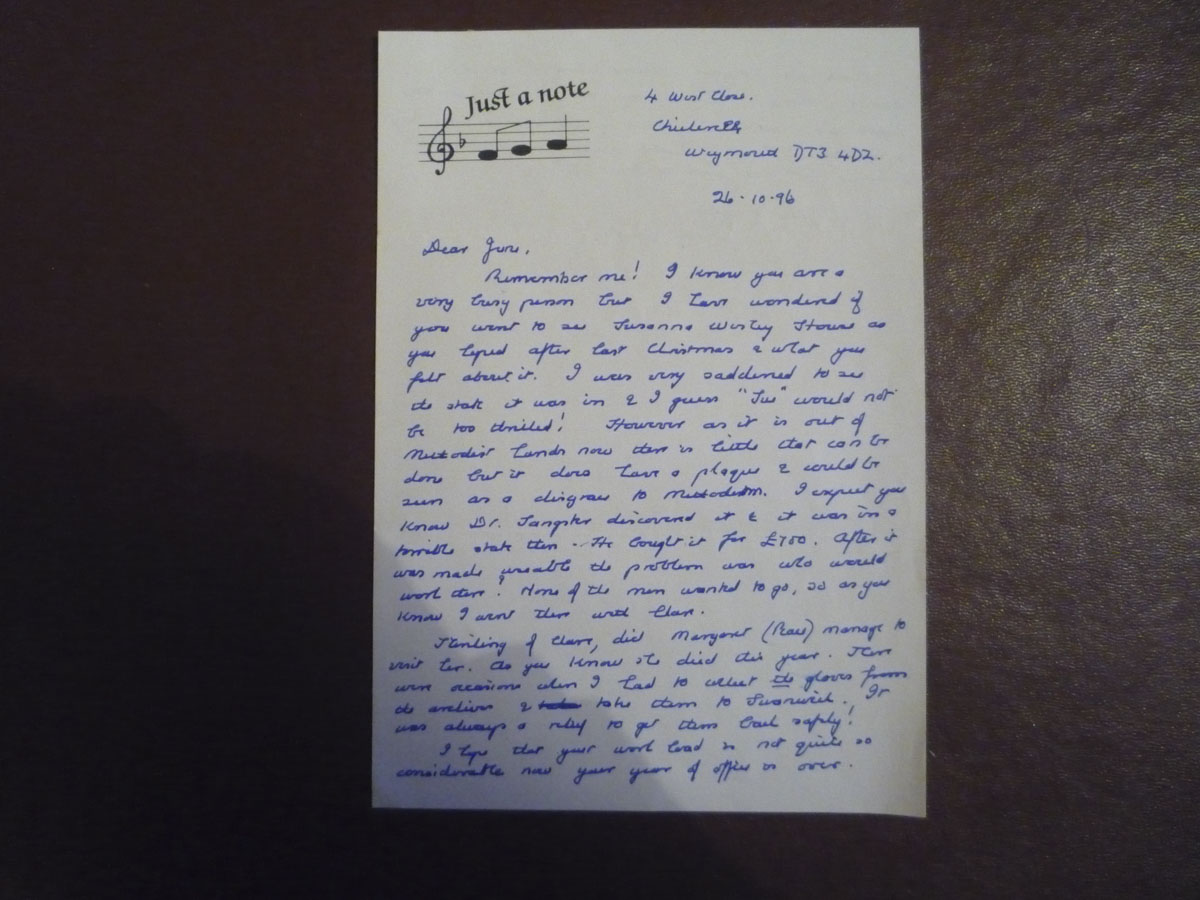 Just a note
4 West Close.
Chickerell
Weymouth DT3 4DZ.
26-10-96
Dear June,
Remember me! I know you are a
very busy person but I have wondered if
you went to see Susanna Wesley House as
you hoped after last Christmas & what you
felt about it. I was very saddened to see
the state it was in & I guess "Sue" would not
be too thrilled! However as it is out of
Methodist hands now there is little that can be
done but it does have a plaque & could be
seen as a disgrace to Methodism. I expect you
know Dr. Sangster discovered it & it was in a
terrible state then - He bought it for £750. After it
was made useable the problem was who would
work there? None of the men wanted to go, so as you
know I went there with Clare.
Thinking of Clare, did Margaret manage to
visit her. As you know she died this year. There
were occasions when I had to collect the gloves from
the archives & take them to Swanwick. It
was always a relief to get them back safely!
I hope that your work load is not quite so
considerable now your year of office is over.